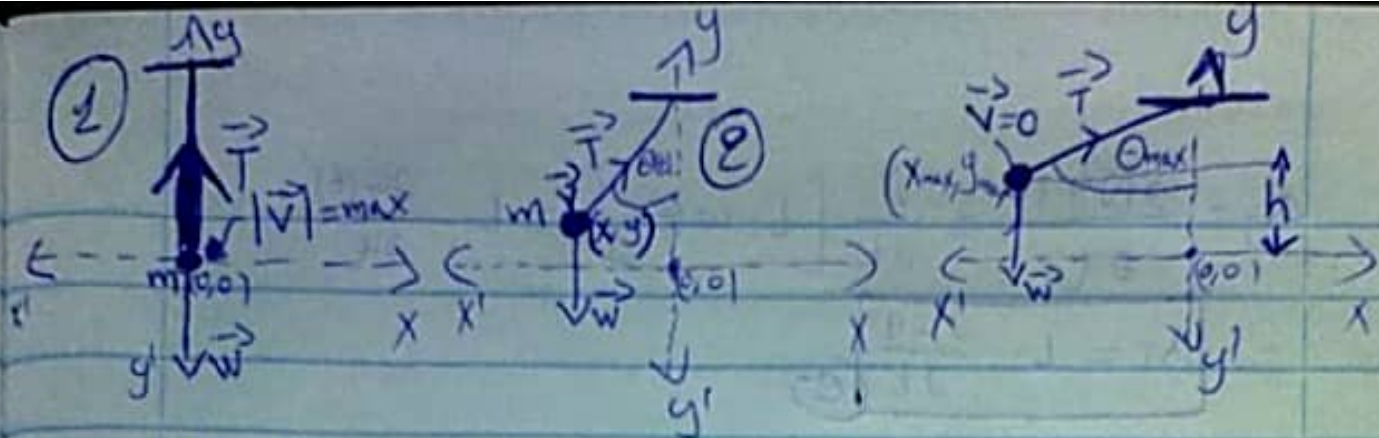 1
y
T
|V|=max
m (0,0)
x'
x
y'
W
y
2
T
θ
V
m
(x,y)
(0,0)
W
x'
x
y'
y
V=0
T
θmax
(xmax,ymax)
h
(0,0)
W
x'
x
y'